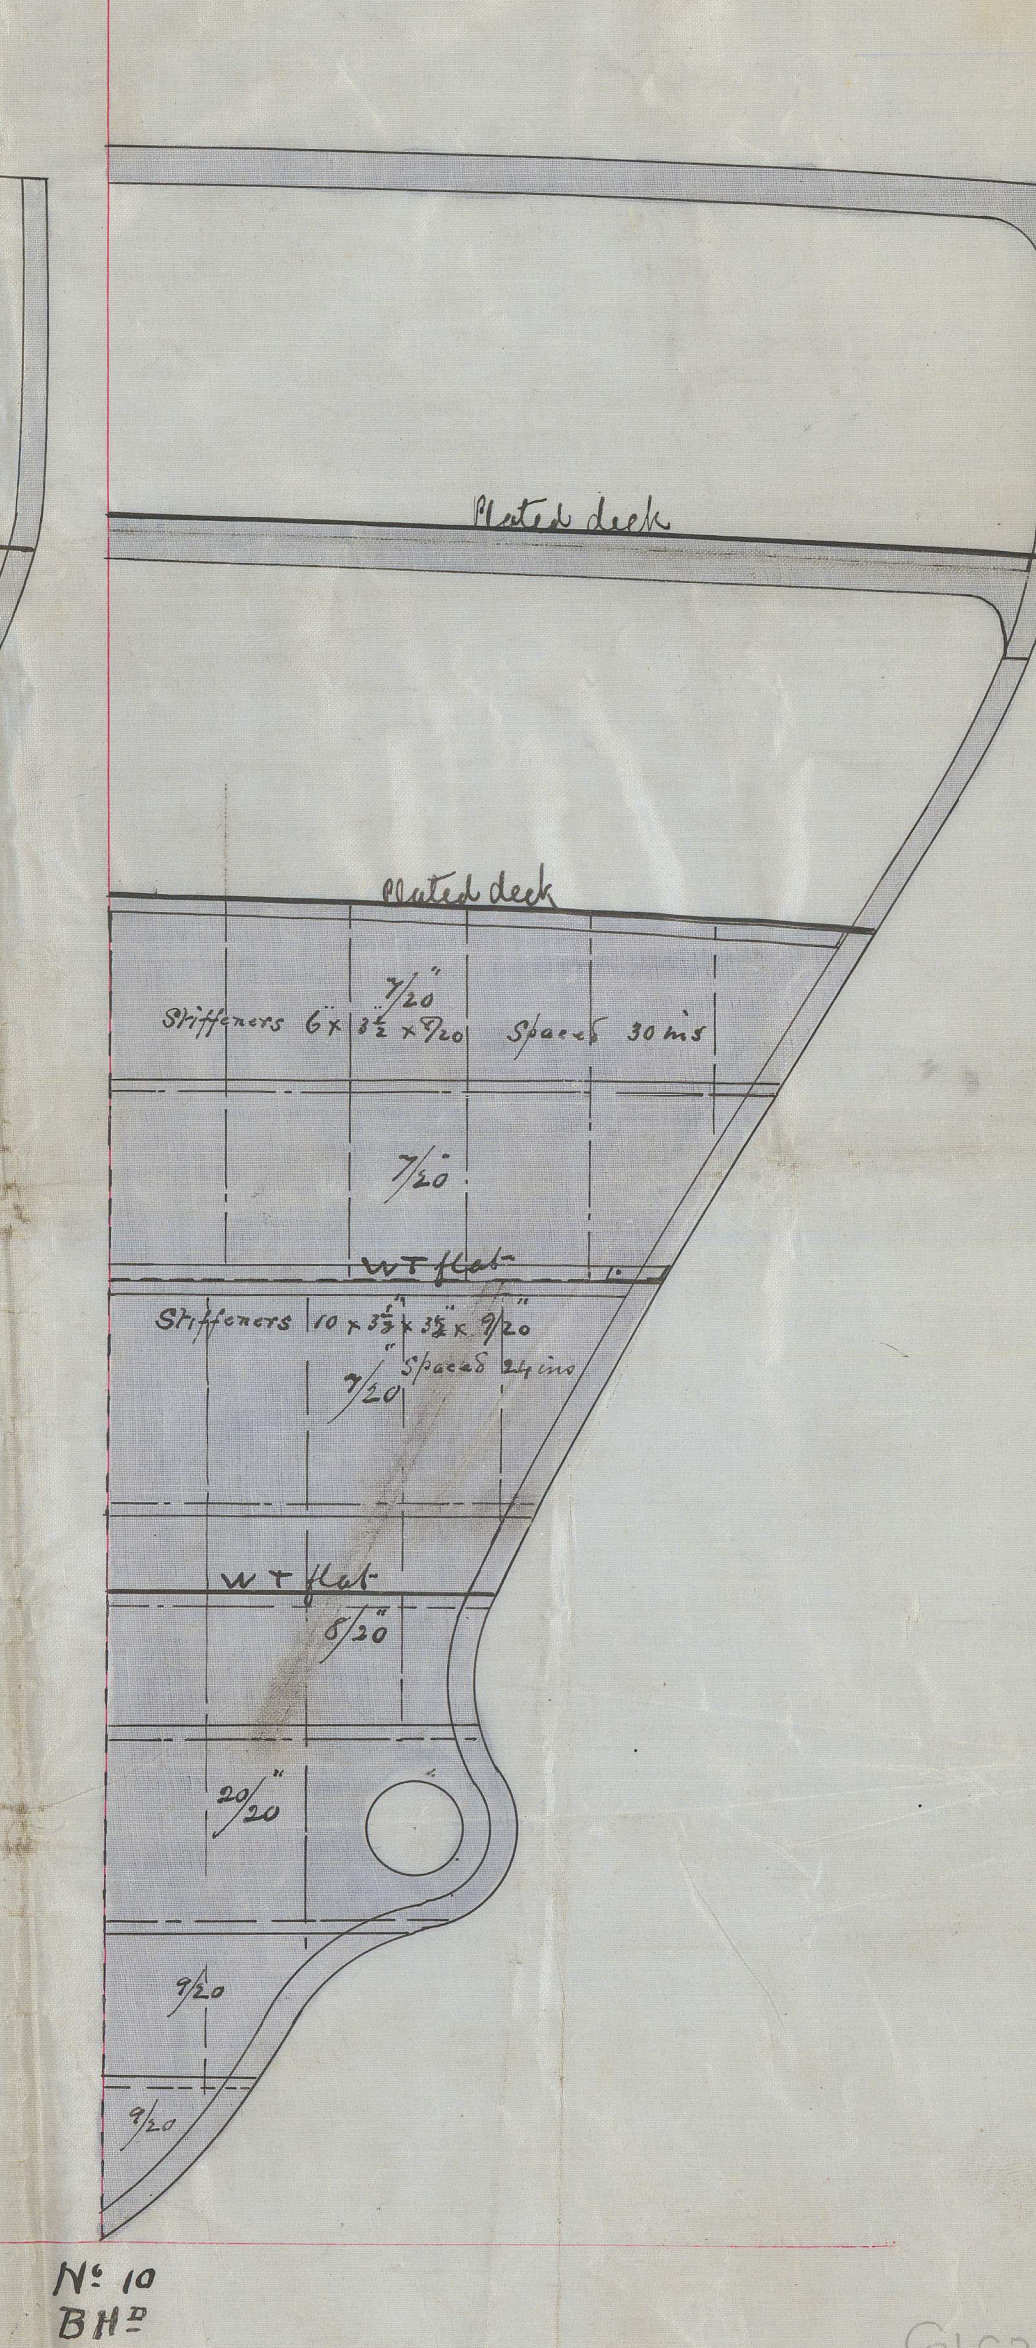 Plated deck
Plated deck
7/20"
Stiffeners 6" x 3½" x 8/20 Spaced 30 ins
7/20"
W T flat
Stiffeners 10 x 3½" x 3½" x 9/20"
Spaced 24 ins
7/20"
W T flat
8/20"
20/20"
9/20
9/20
No 10
BHD